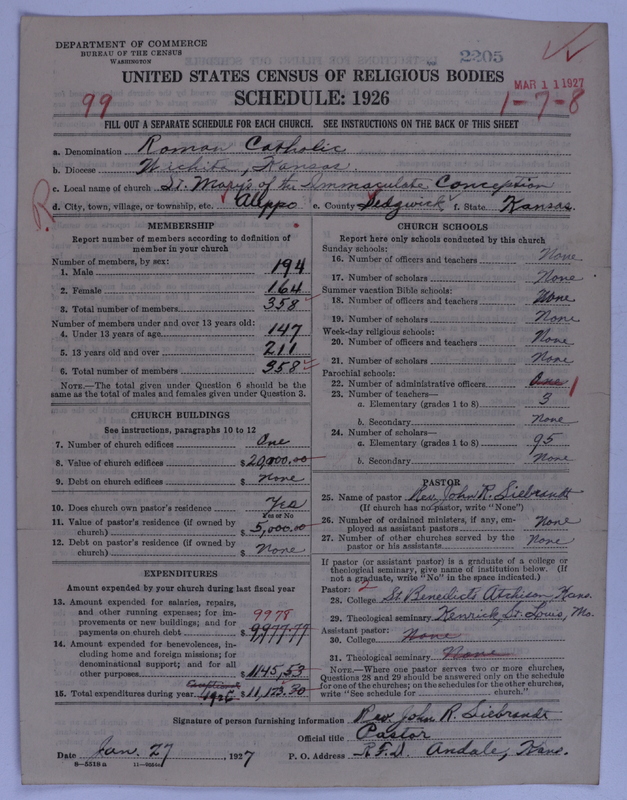 DEPARTMENT OF COMMERCE
BUREAU OF THE CENSUS
WASHINGTON
2205
UNITED STATES CENSUS OF RELIGIOUS BODIES
MAR 11 1927
99
SCHEDULE: 1926
1-7-8
FILL OUT A SEPARATE SCHEDULE FOR EACH CHURCH. SEE INSTRUCTIONS ON THE BACK OF THIS SHEET
a. Denomination Roman Catholic
b. Diocese Wichita, Kansas.
c. Local name of church St. Mary's of the Immaculate Conception
R
d. City, town, village, or township, etc. Aleppo e. County Sedgwick f. State Kansas.
MEMBERSHIP
Report number of members according to definition of member in your church
Number of members, by sex:
1. Male 194
2. Female 164
3. Total number of members 358
Number of members under and over 13 years old:
4. Under 13 years of age 147
5. 13 years old and over 211
6. Total number of members 358
NOTE.—The total given under Question 6 should be the same as the total of males and females given under Question 3.
CHURCH BUILDINGS
See instructions, paragraphs 10 to 12
7. Number of church edifices One
8. Value of church edifices $20,000.00
9. Debt on church edifices $ None
10. Does church own pastor's residence Yes
Yes or No
11. Value of pastor's residence (if owned by church) $5,000.00
12. Debt on pastor's residence (if owned by church) $ None
EXPENDITURES
Amount expended by your church during last fiscal year
13. Amount expended for salaries, repairs, and other running expenses; for improvements or new buildings; and for payments on church debt $ 9977.77
9978
14. Amount expended for benevolences, including home and foreign missions; for denominational support; and for all other purposes $1145.53
15. Total expenditures during year 1926 $11,123.30
CHURCH SCHOOLS
Report here only schools conducted by this church
Sunday schools:
16. Number of officers and teachers None
17. Number of scholars None
Summer vacation Bible schools:
18. Number of officers and teachers None
19. Number of scholars None
Week-day religious schools:
20. Number of officers and teachers None
21. Number of scholars None
Parochial schools:
22. Number of administrative officers One 1
23. Number of teachers—
a. Elementary (grades 1 to 8) 3
b. Secondary None
24. Number of scholars—
a. Elementary (grades 1 to 8) 95
b. Secondary None
PASTOR
25. Name of pastor Rev. John R. Siebrandt
(If church has no pastor, write "None")
26. Number of ordained ministers, if any, employed as assistant pastors None
27. Number of other churches served by the pastor or his assistants None
If pastor (or assistant pastor) is a graduate of a college or theological seminary, give name of institution below. (If not a graduate, write "No" in the space indicated.)
Pastor: 2
28. College St. Benedicts Atchison Kans.
29. Theological seminary Kenrick, St. Louis, Mo.
Assistant pastor:
30. College None
31. Theological seminary None
NOTE.—Where one pastor serves two or more churches, Questions 28 and 29 should be answered only on the schedule for one of the churches; on the schedules for the other churches, write "See schedule for church."
Signature of person furnishing information Rev. John R. Siebrandt
Official title Pastor
Date Jan. 27, 1927 P. O. Address R.F.D. Andale, Kans.
8-5518 a